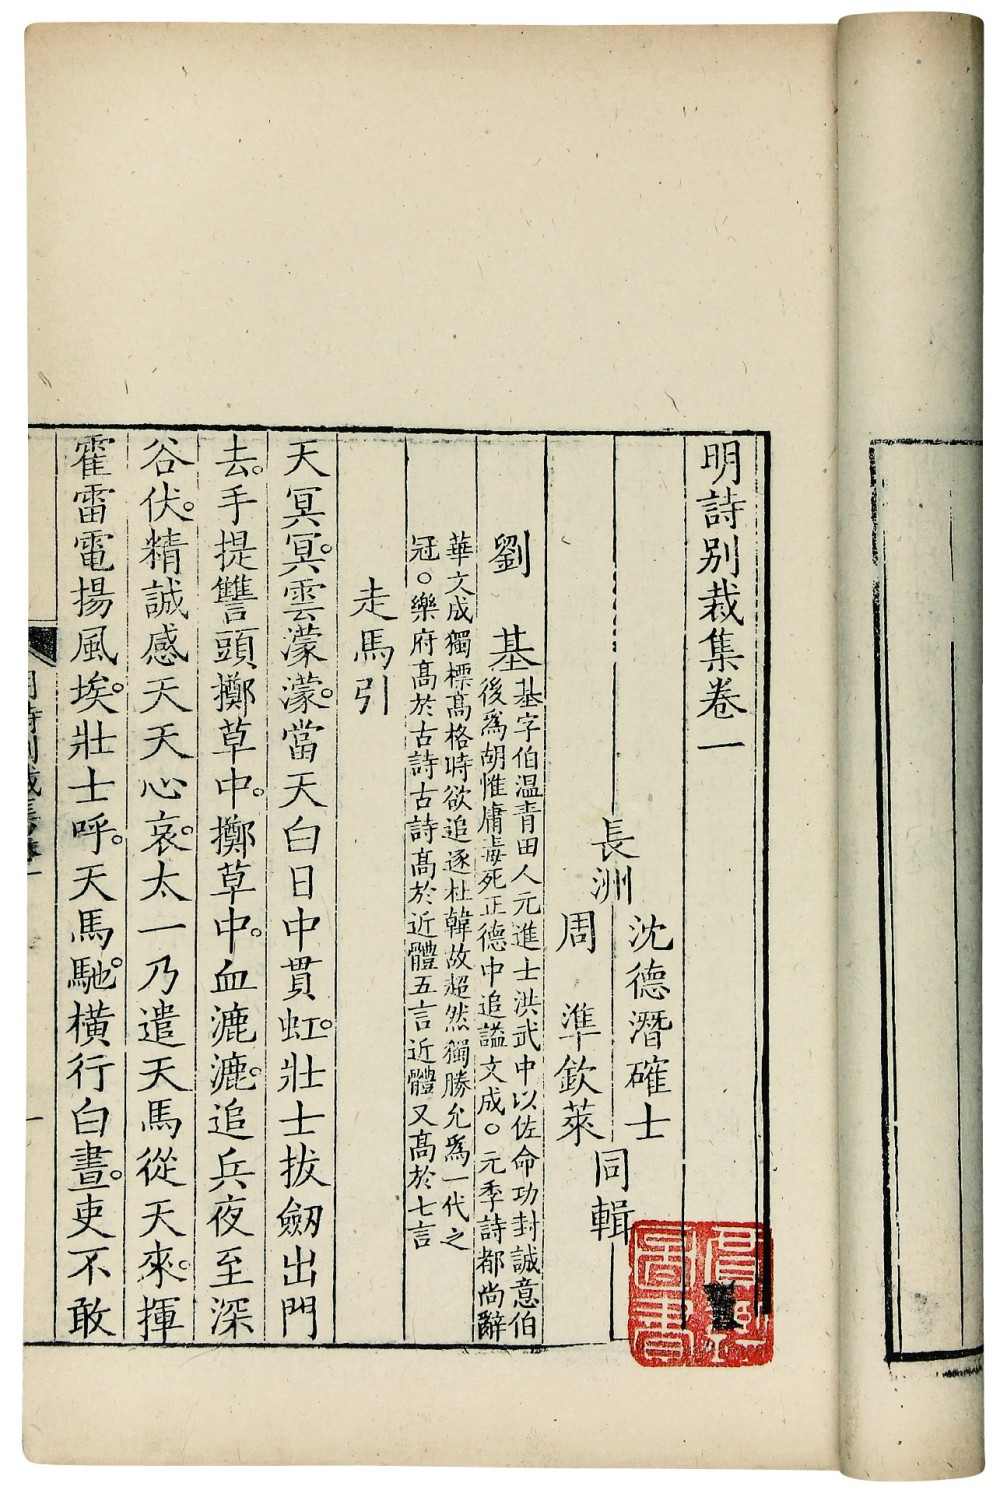 明詩別裁集卷一
長洲
沈德潛確士
周準欽萊
同輯
劉基
基字伯温青田人元進士洪武中以佐命功封誠意伯
後爲胡惟庸毒死正德中追謚文成○元季詩都尚辭
華文成獨標髙格時欲追逐杜韓故超然獨勝允爲一代之
冠○樂府髙於古詩古詩髙於近體五言近體又髙於七言
走馬引
天冥冥。雲濛濛。當天白日中貫虹。壯士拔劒出門
去。手提讐頭擲草中。擲草中。血漉漉。追兵夜至深
谷伏。精誠感天天心哀。太一乃遣天馬從天來。揮
霍雷電揚風埃。壯士呼。天馬馳。橫行白晝。吏不敢